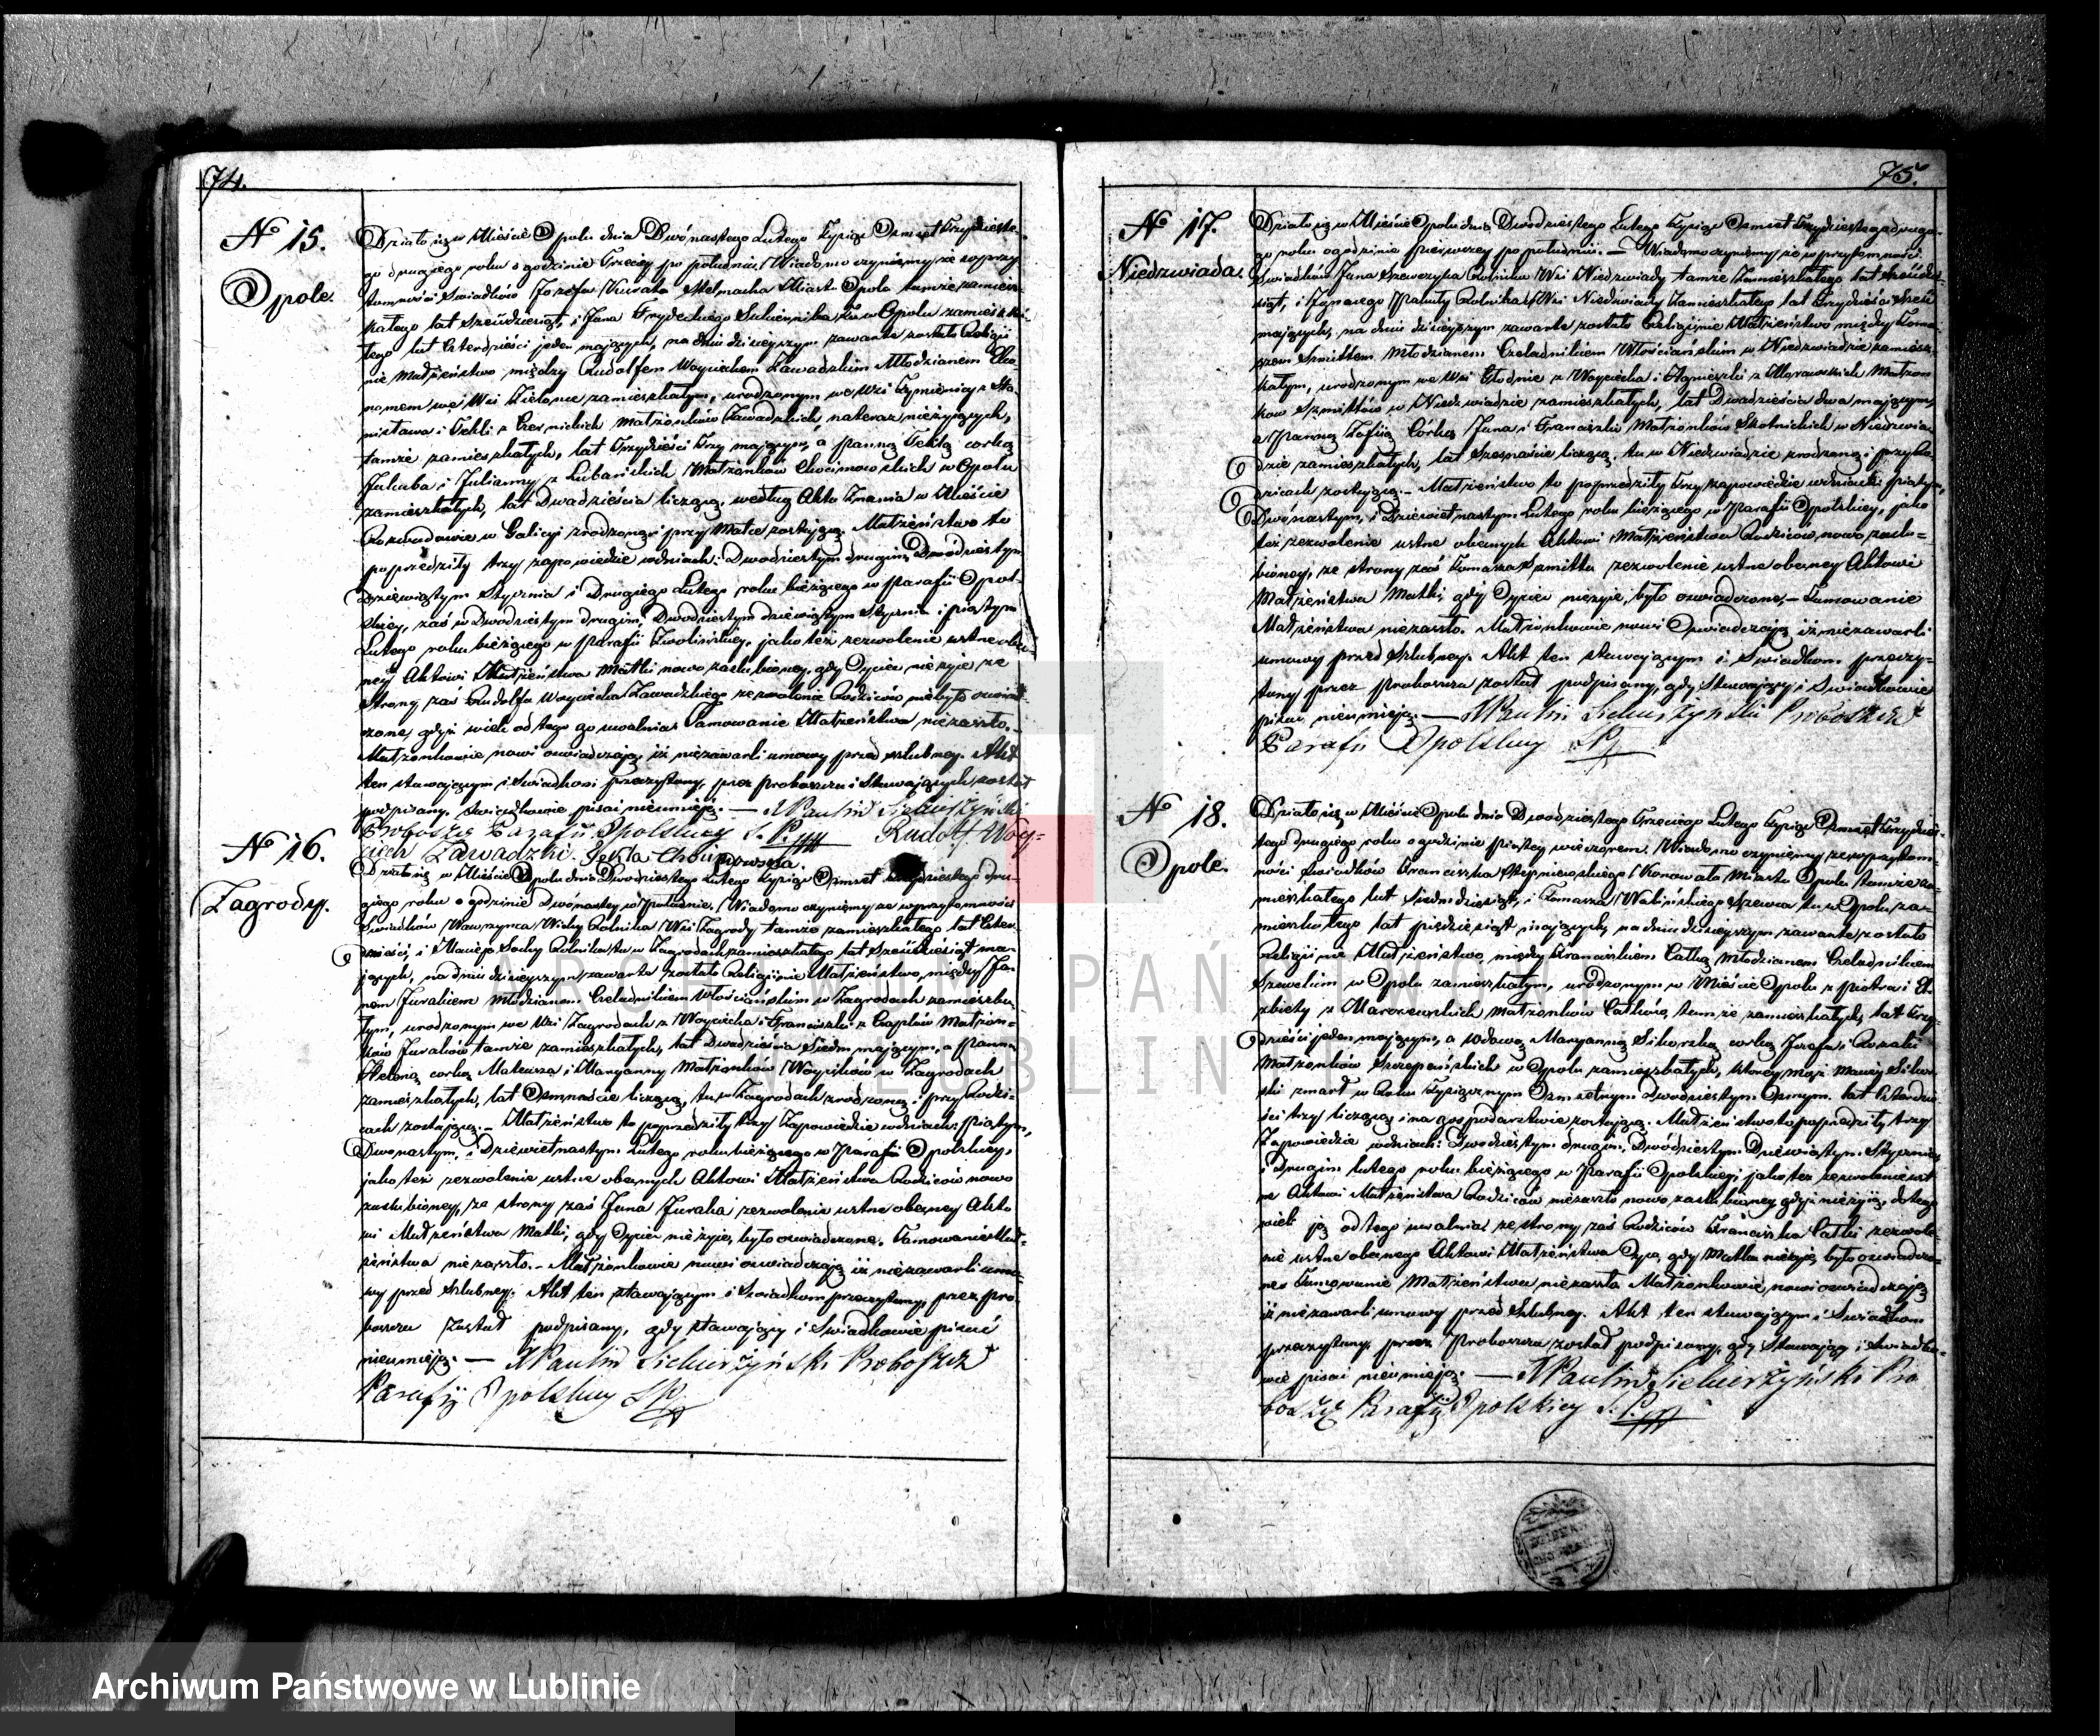 74.
N 15.
Opole.
Działo się w Mieście Opolu dnia Dwónastego Lutego Tysiąc Osmset Trzydzieste-
go drugiego roku o godzinie Trzeciey po południu. Wiadomo czyniemy że w przy
tomności Swiadków Józefa Kurała Stelmacha Miasta Opola tamże zamiesz-
kałego lat Sześćdziesiąt, i Jana Frydeckiego Sukiennika tu w Opolu zamieszka-
łego lat Czterdzieści jeden mających, na dniu dzisieyszym zawarte zostało Religij
nie Małżeństwo między Rudolfem Woyciechem Zawadzkim Młodzianem Eko-
nomem we Wsi Zielonce zamieszkałym, urodzonym we Wsi z Sta-
nisława i Tekli z Czernickich Małżonków Zawadzkich, na teraz nieżyjących,
tamże zamieszkałych, lat Trzydzieści Trzy mającym, a Panną Teklą córką
Jakuba i Julianny z Lubańskich Małżonków Choeinowskich w Opolu
zamieszkałych, lat Dwadzieścia liczącą, według Aktu Znania w Mieście
Rozwadowie w Galicyi zrodzoną i przy Matce zostającą. Małżeństwo to
poprzedziły trzy zapowiedzie w dniach: Dwudziestym drugim, Dwudziestym
Dziewiątym Stycznia i Drugiego Lutego roku bieżącego w Parafii Opol-
skiey, zaś w Dwudziestym drugim, Dwudziestym dziewiątym Stycznia i piątym
Lutego roku bieżącego w Parafii jako też zezwolenie ustne obec-
ney Aktowi Małżeństwa Matki nowo zaślubioney, gdy Oyciec nieżyje ze
Strony zaś Rudolfa Woyciecha Zawadzkiego zezwolenie Rodziców niebyło oświad-
czone, gdyż wiek od tego go uwalnia. Tamowanie Małżeństwa niezaszło.
Małżonkowie nowi oświadczają, iż niezawarli umowy przed ślubney. Akt
ten stawaiącym i Swiadkom przeczytany, przez Proboszcza i Stawających został
podpisany. Swiadkowie pisać nieumieją. — X Paulin Siekierzyński
Proboszcz Parafii Opolskiey Rudolf Woy-
ciech Zawadzki. Tekla
N 16.
Zagrody.
Działo się w Mieście Opolu dnia Dwudziestego Lutego Tysiąc Osmset Trzydziestego dru-
giego roku o godzinie Dwónastey w Południe. Wiadomo czyniemy że w przytomności
Swiadków Wawrzyńca Wichy Rolnika Wsi Zagrody tamże zamieszkałego lat Czter-
dzieści, i Macieja Sochy Rolnika tu w Zagrodach zamieszkałego lat Sześćdziesiąt ma-
jących, na dniu dzisieyszym zawarte zostało Religijnie Małżeństwo, między Ja-
nem Jurakiem Młodzianem Czeladnikiem Włościańskim w Zagrodach zamieszka-
łym, urodzonym we Wsi Zagrodach z Woyciecha i Franciszki z Czaplów Małżon-
ków Juraków tamże zamieszkałych, lat Dwadzieścia Siedm mającym, a Panną
Heleną córką Mateusza i Maryanny Małżonków w Zagrodach
zamieszkałych, lat Ośmnaście liczącą, tu w Zagrodach zrodzoną i przy Rodzi-
cach zostającą. — Małżeństwo to poprzedziły trzy Zapowiedzie w dniach: Piątym,
Dwonastym, i Dziewiętnastym Lutego roku bieżącego w Parafii Opolskiey,
jako też zezwolenie ustne obecnych Aktowi Małżeństwa Rodziców nowo
zaślubioney, ze strony zaś Jana Juraka zezwolenie ustne obecney Akto
wi Małżeństwa Matki, gdy Oyciec nieżyje, było oświadczone. Tamowanie Mał-
żeństwa niezaszło. — Małżonkowie nowi oświadczają iż niezawarli umo-
wy przed ślubney. Akt ten stawającym i Swiadkom przeczytany, przez Pro-
boszcza został podpisany, gdy stawający i Swiadkowie pisać
nieumieją. — X Paulin Siekierzyński Proboszcz
Parafii Opolskiey
75.
N 17.
Niedzwiada.
Działo się w Mieście Opolu dnia Dwudziestego Lutego Tysiąc Osmset Trzydziestego drugie-
go roku o godzinie pierwszey po południu. — Wiadomo czyniemy że w przytomności
Swiadków Jana Szewczyka Rolnika Wsi Niedzwiady tamże Zamieszkałego lat Sześćdzie-
siąt, i Ignacego Rolnika Wsi Niedzwiady zamieszkałego lat Trzydzieści
mających, na dniu dzisieyszym zawarte zostało Religijnie Małżeństwo między Toma-
szem Szmitkem Młodzianem Czeladnikiem Włościańskim w Niedzwiadzie zamiesz-
kałym, urodzonym we Wsi z Woyciecha i Agnieszki z Małżon
ków Szmitków w Niedzwiadzie zamieszkałych, lat Dwadzieścia dwa mającym,
a Panną Zofiią Córką Jana i Franciszki Małżonków Skotnickich w Niedzwia-
dzie zamieszkałych, lat Szesnaście liczącą, tu w Niedzwiadzie zrodzoną i przy Ro-
dzicach zostającą. — Małżeństwo to poprzedziły trzy zapowiedzie w dniach: Piątym,
Dwónastym, i Dziewiętnastym Lutego roku bieżącego w Parafii Opolskiey, jako
też zezwolenie ustne obecnych Aktowi Małżeństwa Rodziców nowo zaślu-
bioney, ze strony zaś Tomasza Szmitka zezwolenie ustne obecney Aktowi
Małżeństwa Matki, gdy Oyciec nieżyje, było oświadczone. — Tamowanie
Małżeństwa niezaszło. Małżonkowie nowi Oświadczają iż niezawarli
umowy przed Szlubney. Akt ten stawającym i Swiadkom przeczy-
tany przez Proboszcza został podpisany, gdy Stawający i Swiadkowie
pisać nieumieją. — X Paulin Siekierzyński Proboszcz
Parafii Opolskiey
N 18.
Opole.
Działo się w Mieście Opolu dnia Dwudziestego Trzeciego Lutego Tysiąc Osmset Trzydzies-
tego drugiego roku o godzinie piątey wieczorem. Wiadomo czyniemy że w przytom-
ności Swiadków Franciszka Stępniewskiego Konowała Miasta Opola tamże za-
mieszkałego lat Siedmdziesiąt, i Tomasza Walińskiego Szewca tu w Opolu za-
mieszkałego lat pięćdziesiąt mających, na dniu dzisieyszym zawarte zostało
Religijnie Małżeństwo między Franciszkiem Całką Młodzianem Czeladnikiem
Szewckim w Opolu zamieszkałym, urodzonym w Mieście Opolu z Piotra i El-
żbiety z Małżonków Całków, tamże zamieszkałych, lat Trzy-
dzieści jeden mającym, a Wdową Maryanną Sikorską córką Józefa i Rozalii
Małżonków Szczepańskich w Opolu zamieszkałych, którey mąż Maciey Sikor-
ski zmarł w Roku Tysiącznym Osmsetnym Dwudziestym Osmym. lat Czterdzie-
ści trzy liczącą i na gospodarstwie zostającą. Małżeństwo to poprzedziły trzy
Zapowiedzie w dniach: Dwudziestym drugim, Dwódziestym Dziewiątym Stycznia
i drugim lutego roku bieżącego w Parafii Opolskiey; jako też zezwolenie ust
ne Aktowi Małżeństwa Rodziców niezaszło nowo zaślubioney gdyż nieżyją, do tego
wiek ją od tego uwalnia, ze strony zaś Rodziców Franciszka Całki zezwole-
nie ustne obecnego Aktowi Małżeństwa Oyca, gdy Matka nieżyje, było oświadczo-
ne. Tamowanie Małżeństwa niezaszło. Małżonkowie nowi oświadczają
iż niezawarli umowy przed Szlubney. Akt ten stawającym i Swiadkom
przeczytany, przez Proboszcza został podpisany, gdy Stawający i Swiadko-
wie pisać nieumieją. — X Paulin Siekierzyński Pro
boszcz Parafii Opolskiey
ARCHIWUM PAŃSTWOWE
W LUBLINIE
Archiwum Państwowe w Lublinie